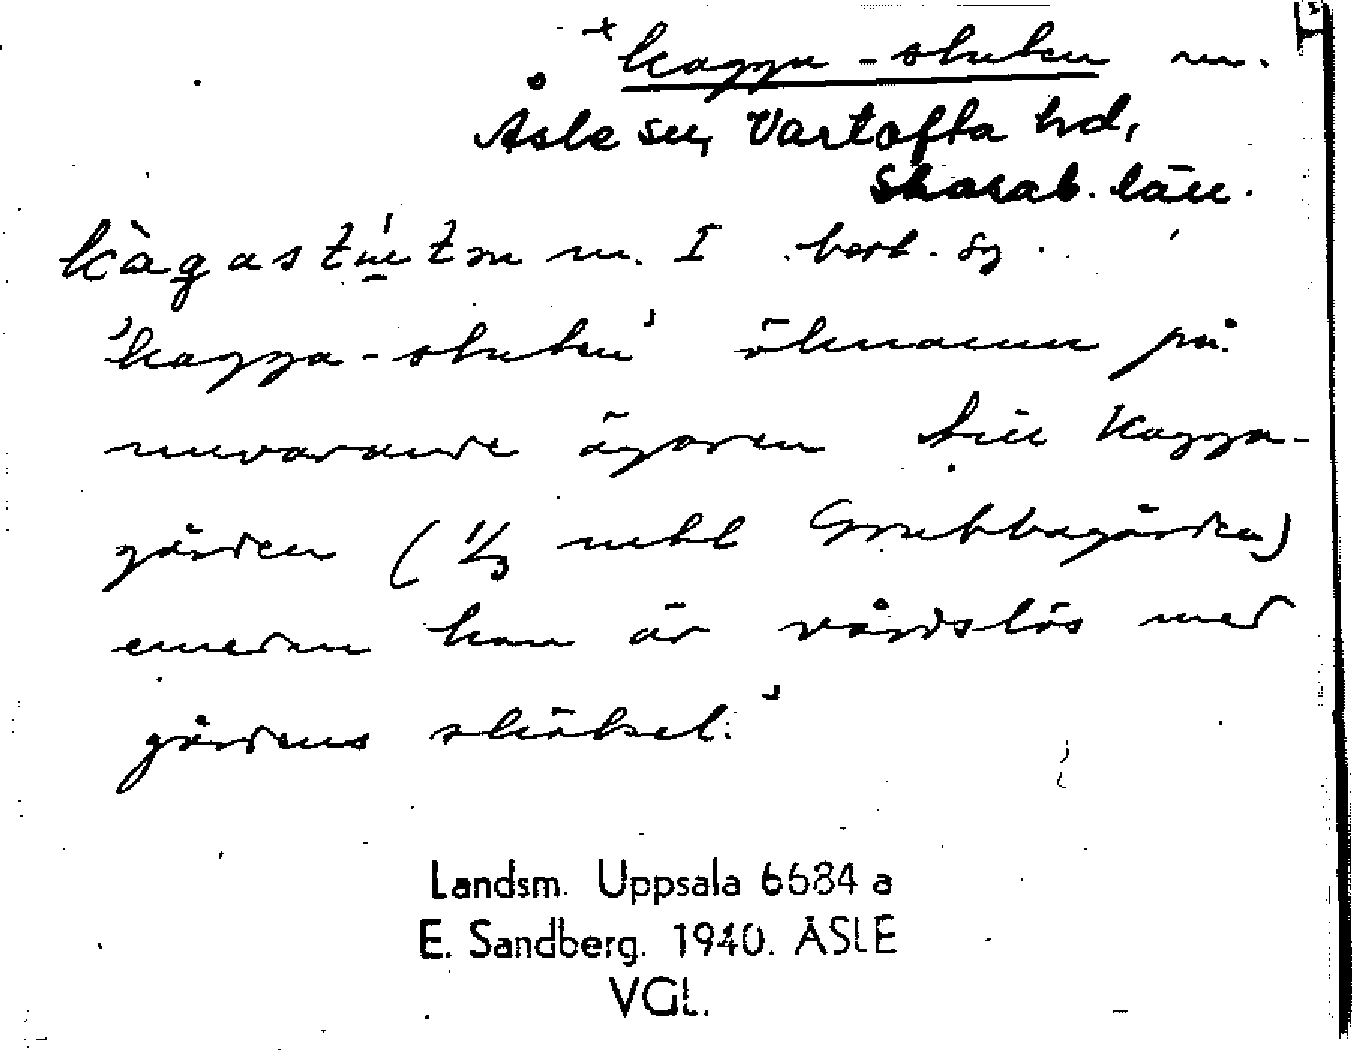 * kagga-stuten m.
Åsle sn, Vartofta hd,
Skarab. län.
m. I best. sg.
'kagga-stuten' öknamn på
nuvarande ägaren till Kagga-
gården (1/3 mtl Grubbagården)
emedan han är vårdslös med
gårdens skötsel.
Landsm. Uppsala 6684 a
E. Sandberg. 1940. ÅSLE
VGL.